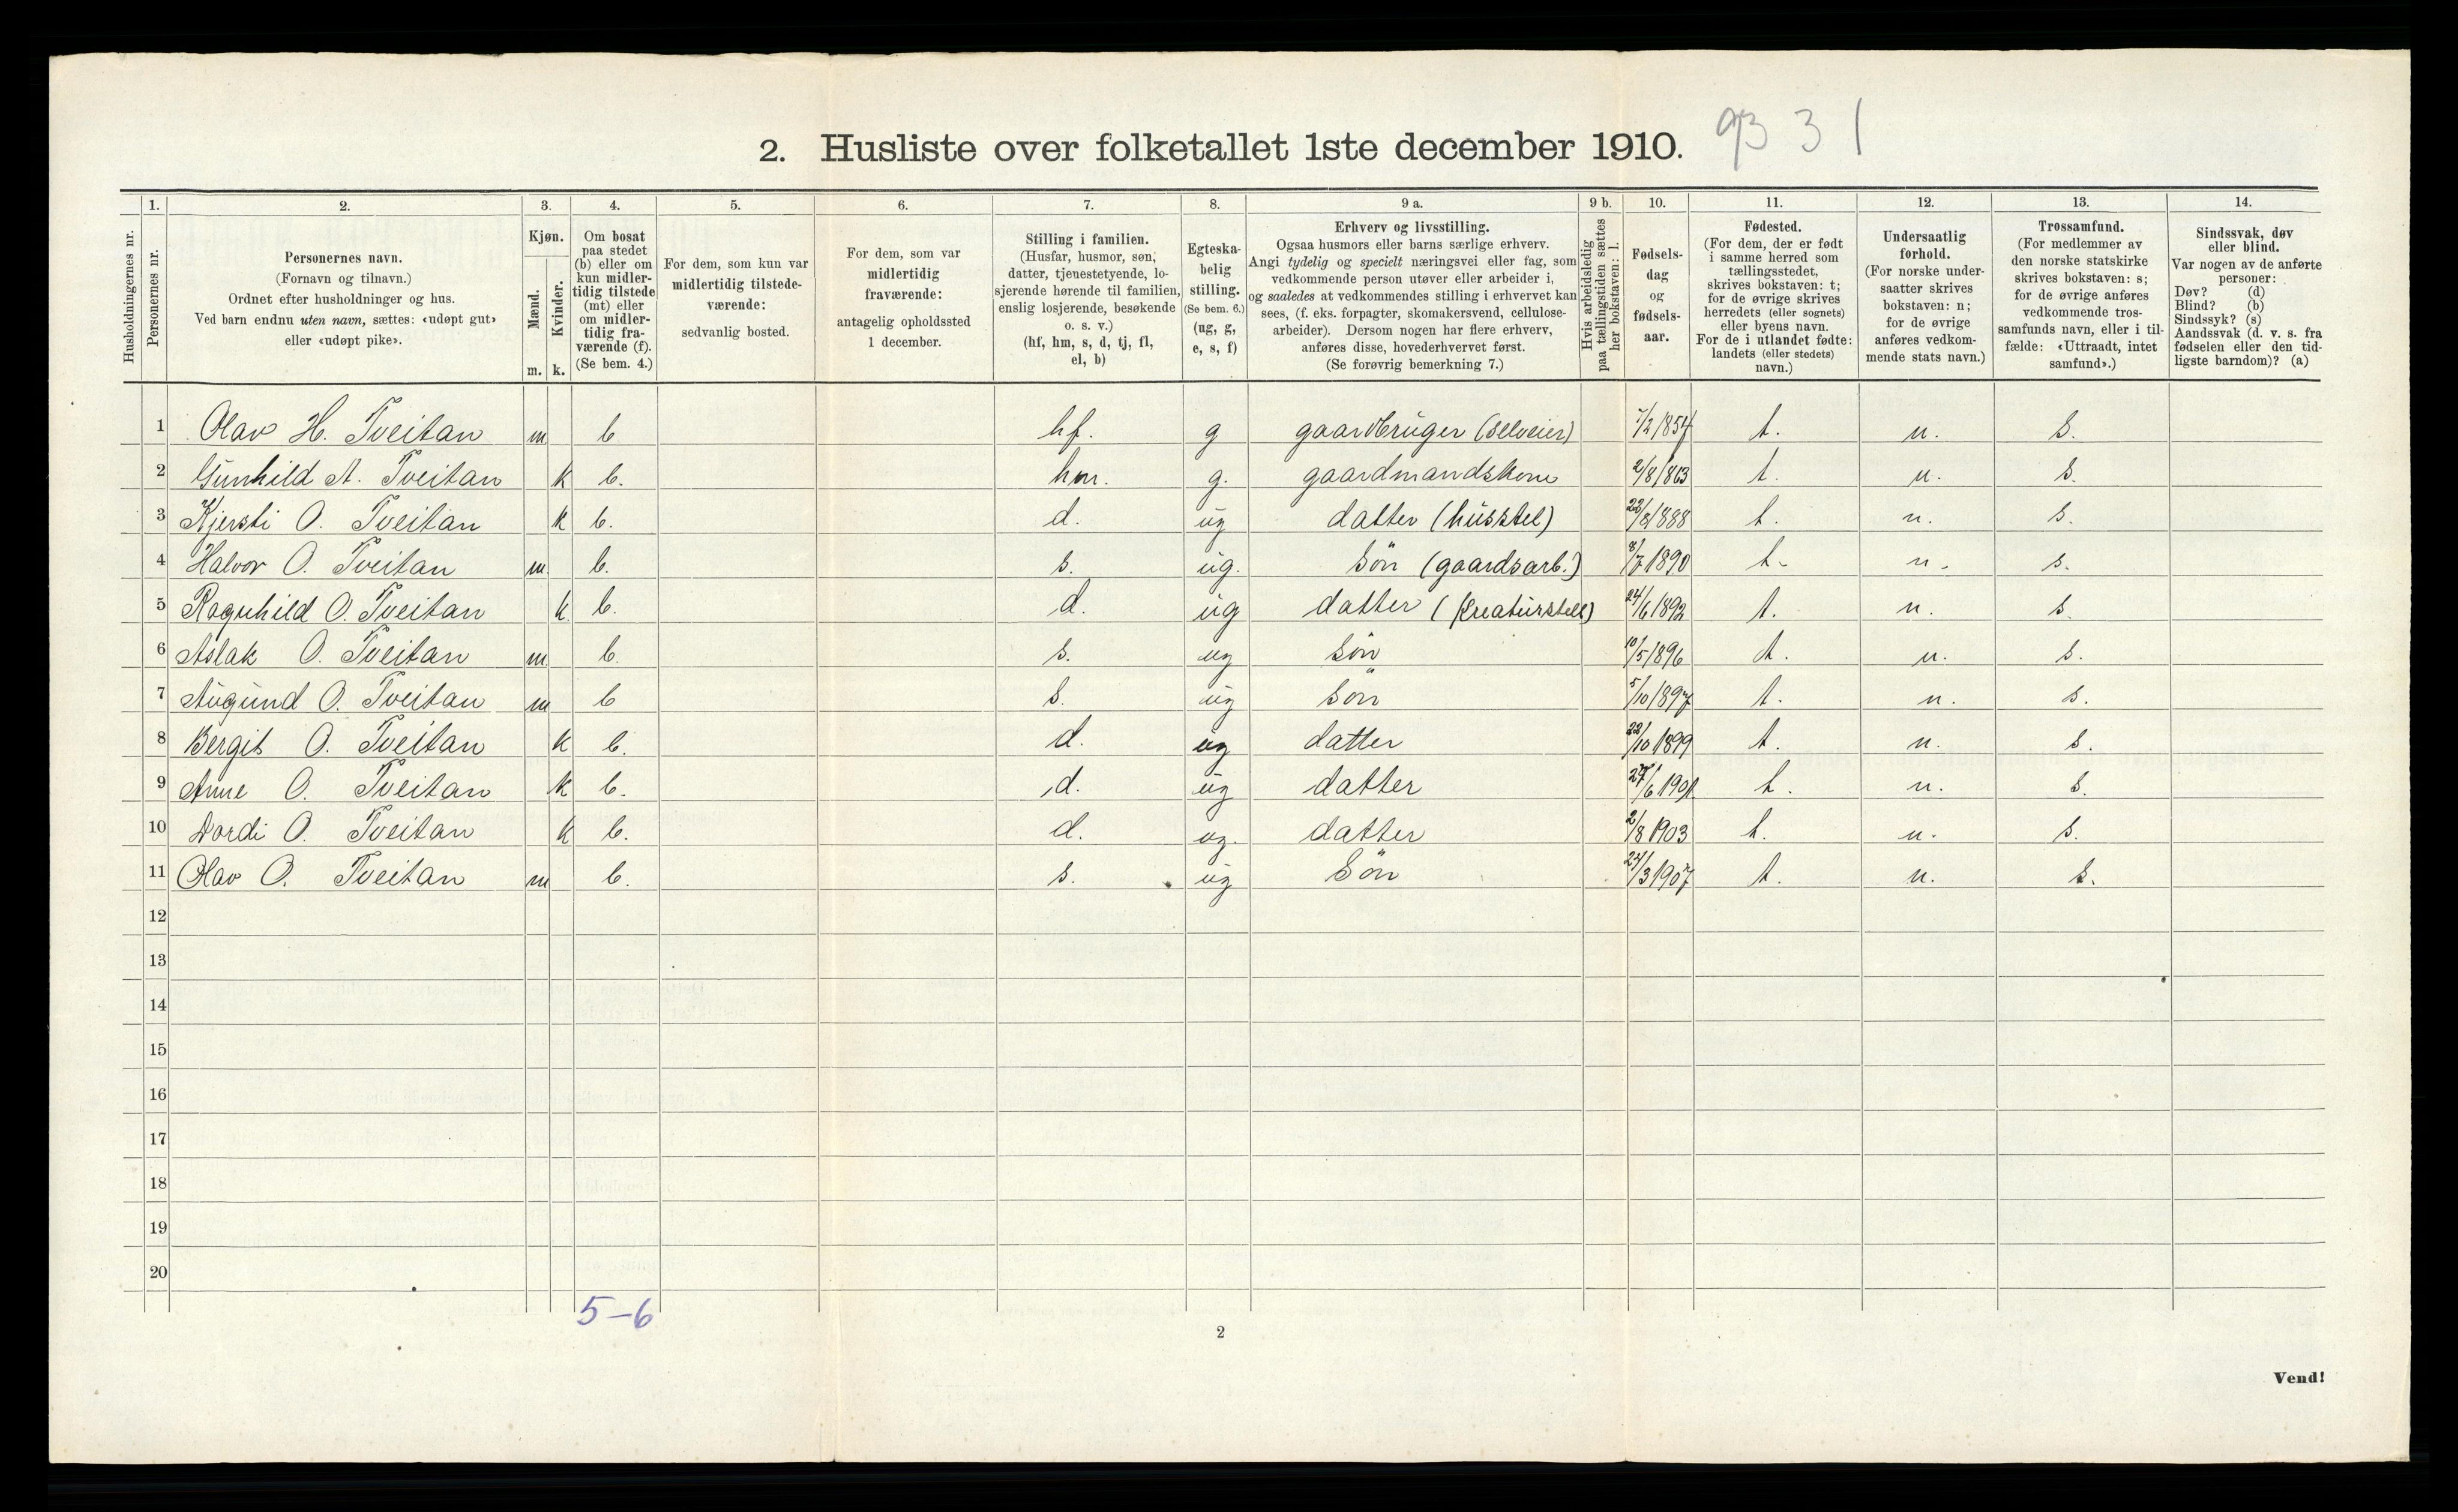 2. Husliste over folketallet 1ste december 1910. 93 3 1
Husholdningernes nr.
1. 2. 3. 4. 5. 6. 7. 8. 9 a. 9 b. 10. 11. 12. 13. 14.
Personernes nr.
Personernes navn.
(Fornavn og tilnavn.)
Ordnet efter husholdninger og hus.
Ved barn endnu uten navn, sættes: «udøpt gut»
eller «udøpt pike».
Kjøn.
Mænd.
Kvinder.
m. k.
Om bosat
paa stedet
(b) eller om
kun midler-
tidig tilstede
(mt) eller
om midler-
tidig fra-
værende (f).
(Se bem. 4.)
For dem, som kun var
midlertidig tilstede-
værende:
sedvanlig bosted.
For dem, som var
midlertidig
fraværende:
antagelig opholdssted
1 december.
Stilling i familien.
(Husfar, husmor, søn,
datter, tjenestetyende, lo-
sjerende hørende til familien,
enslig losjerende, besøkende
o. s. v.)
(hf, hm, s, d, tj, fl,
el, b)
Egteska-
belig
stilling.
(Se bem. 6.)
(ug, g,
e, s, f)
Erhverv og livsstilling.
Ogsaa husmors eller barns særlige erhverv.
Angi tydelig og specielt næringsvei eller fag, som
vedkommende person utøver eller arbeider i,
og saaledes at vedkommendes stilling i erhvervet kan
sees, (f. eks. forpagter, skomakersvend, cellulose-
arbeider). Dersom nogen har flere erhverv,
anføres disse, hovederhvervet først.
(Se forøvrig bemerkning 7.)
Hvis arbeidsledig
paa tællingstiden sættes
her bokstaven: l.
Fødsels-
dag
og
fødsels-
aar.
Fødested.
(For dem, der er født
i samme herred som
tællingsstedet,
skrives bokstaven: t;
for de øvrige skrives
herredets (eller sognets)
eller byens navn.
For de i utlandet fødte:
landets (eller stedets)
navn.)
Undersaatlig
forhold.
(For norske under-
saatter skrives
bokstaven: n;
for de øvrige
anføres vedkom-
mende stats navn.)
Trossamfund.
(For medlemmer av
den norske statskirke
skrives bokstaven: s;
for de øvrige anføres
vedkommende tros-
samfunds navn, eller i til-
fælde: «Uttraadt, intet
samfund».)
Sindssvak, døv
eller blind.
Var nogen av de anførte
personer:
Døv? (d)
Blind? (b)
Sindssyk? (s)
Aandssvak (d. v. s. fra
fødselen eller den tid-
ligste barndom)? (a)
1 Olav H. Tveitan m b hf. g gaardbruger (selveier) 7/2 1854 t. n. s.
2 Gunhild A. Tveitan k b. hm. g. gaardmandskone 2/8 1863 t. n. s.
3 Kjersti O. Tveitan k b. d. ug datter (husstel) 23/8 1888 t. n. s.
4 Halvor O. Tveitan m b. s. ug. Søn (gaardsarb.) 8/7 1890 t. n. s.
5 Ragnhild O. Tveitan k. b. d. ug datter (kreaturstell) 24/6 1892 t. n. s.
6 Aslak O. Tveitan m b. s. ug Søn 10/5 1896 t. n. s.
7 Augund O. Tveitan m b s. ug Søn 5/10 1897 t. n. s.
8 Bergit O. Tveitan k b. d. ug datter 22/10 1899 t. n. s.
9 Anne O. Tveitan k b. d. ug datter 27/6 1901 t. n. s.
10 Dordi O. Tveitan k b. d. ug. datter 2/8 1903 t. n. s.
11 Olav O. Tveitan m b. s. ug Søn 24/3 1907 t. n. s.
12
13
14
15
16
17
18
19
20
5-6
2
Vend!